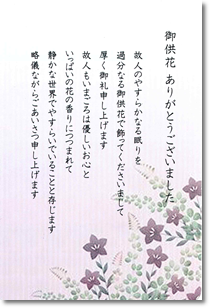 御供花 ありがとうございました
故人のやすらかなる眠りを
過分なる御供花で飾ってくださいまして
厚く御礼申し上げます
故人もいまごろは優しいお心と
いっぱいの花の香りにつつまれて
静かな世界でやすらいでいることと存じます
略儀ながらごあいさつ申し上げます